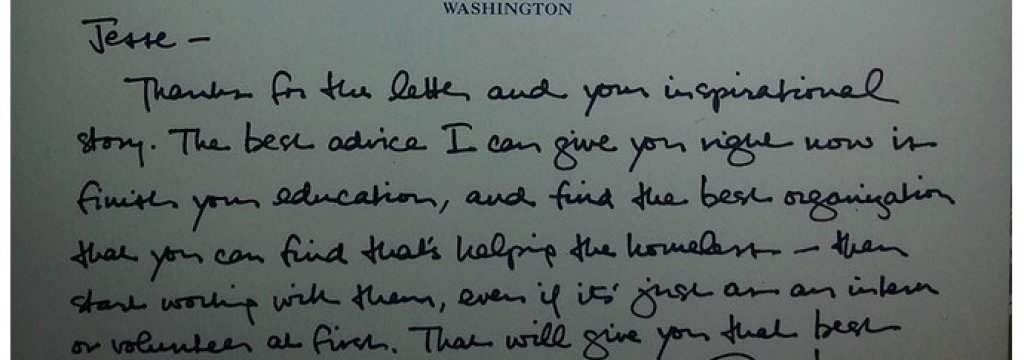 WASHINGTON
Jesse —
Thanks for the letter and your inspirational
story. The best advice I can give you right now is
finish your education, and find the best organization
that you can find that's helping the homeless — then
start working with them, even if it's just as an intern
or volunteer at first. That will give you that best